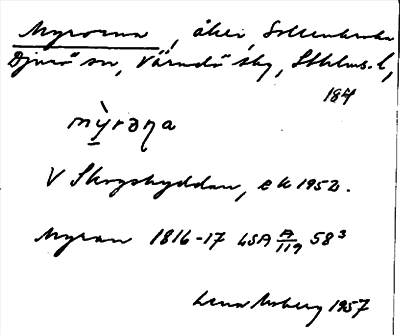 Myrorna, åker, Sollenkroka
Djurö sn, Värmdö sky, Sthlms l,
184
mỳrəṇa
V Skogshyddan, ek 1952.
Myran 1816-17 LSA A/119 58³
Lena Moberg 1957